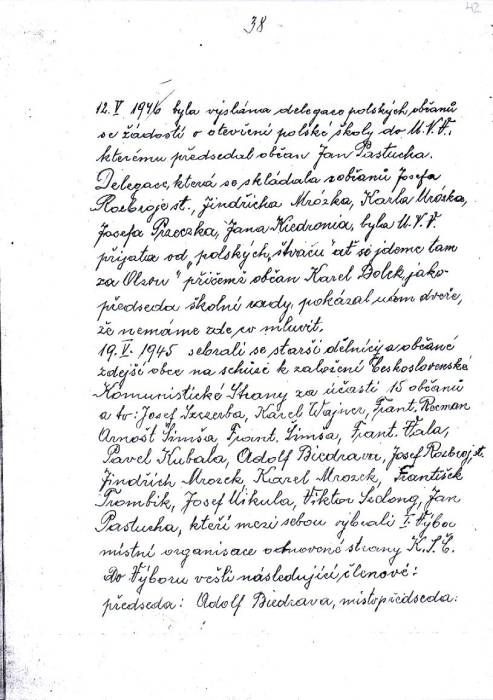 42
38
12. V 1946 byla vyslána delegace polských občanů
se žádostí o otevření polské školy do M.N.V.,
kterému předsedal občan Jan Pastucha.
Delegace, která se skládala z občanů Josefa
Rozbroje st., Jindřicha Mrózka, Karla Mrózka,
Josefa Przeczka, Jana Kiedronia, byla M.N.V.
přijata od "polských štváču" ať si jdeme tam
za Olzou" přičemž občan Karel Bolek jako
předseda školní rady, pokázal nám dveře,
že nemáme zde co mluvit.
19. V. 1945 sebrali se starší dělníci a občané
zdejší obce na schůsi k založení Československé
Komunistické Strany za účasti 15 občanů
a to: Josef Szczerba, Karel Wajner, Frant. Recman
Arnošt Šimša, Frant. Šimša, Frant. Fala,
Pavel Kubala, Adolf Biedrava, Josef Rozbroj st.
Jindřich Mrozek Karel Mrozek, František
Trombik, Josef Mikula, Viktor Szlong, Jan
Pastucha, kteří mezi sebou vybrali I. Výbor
místní organisace obnovené strany K.S.Č.
Do Výboru vešli následující členové:
předseda: Adolf Biedrava, místopředseda: